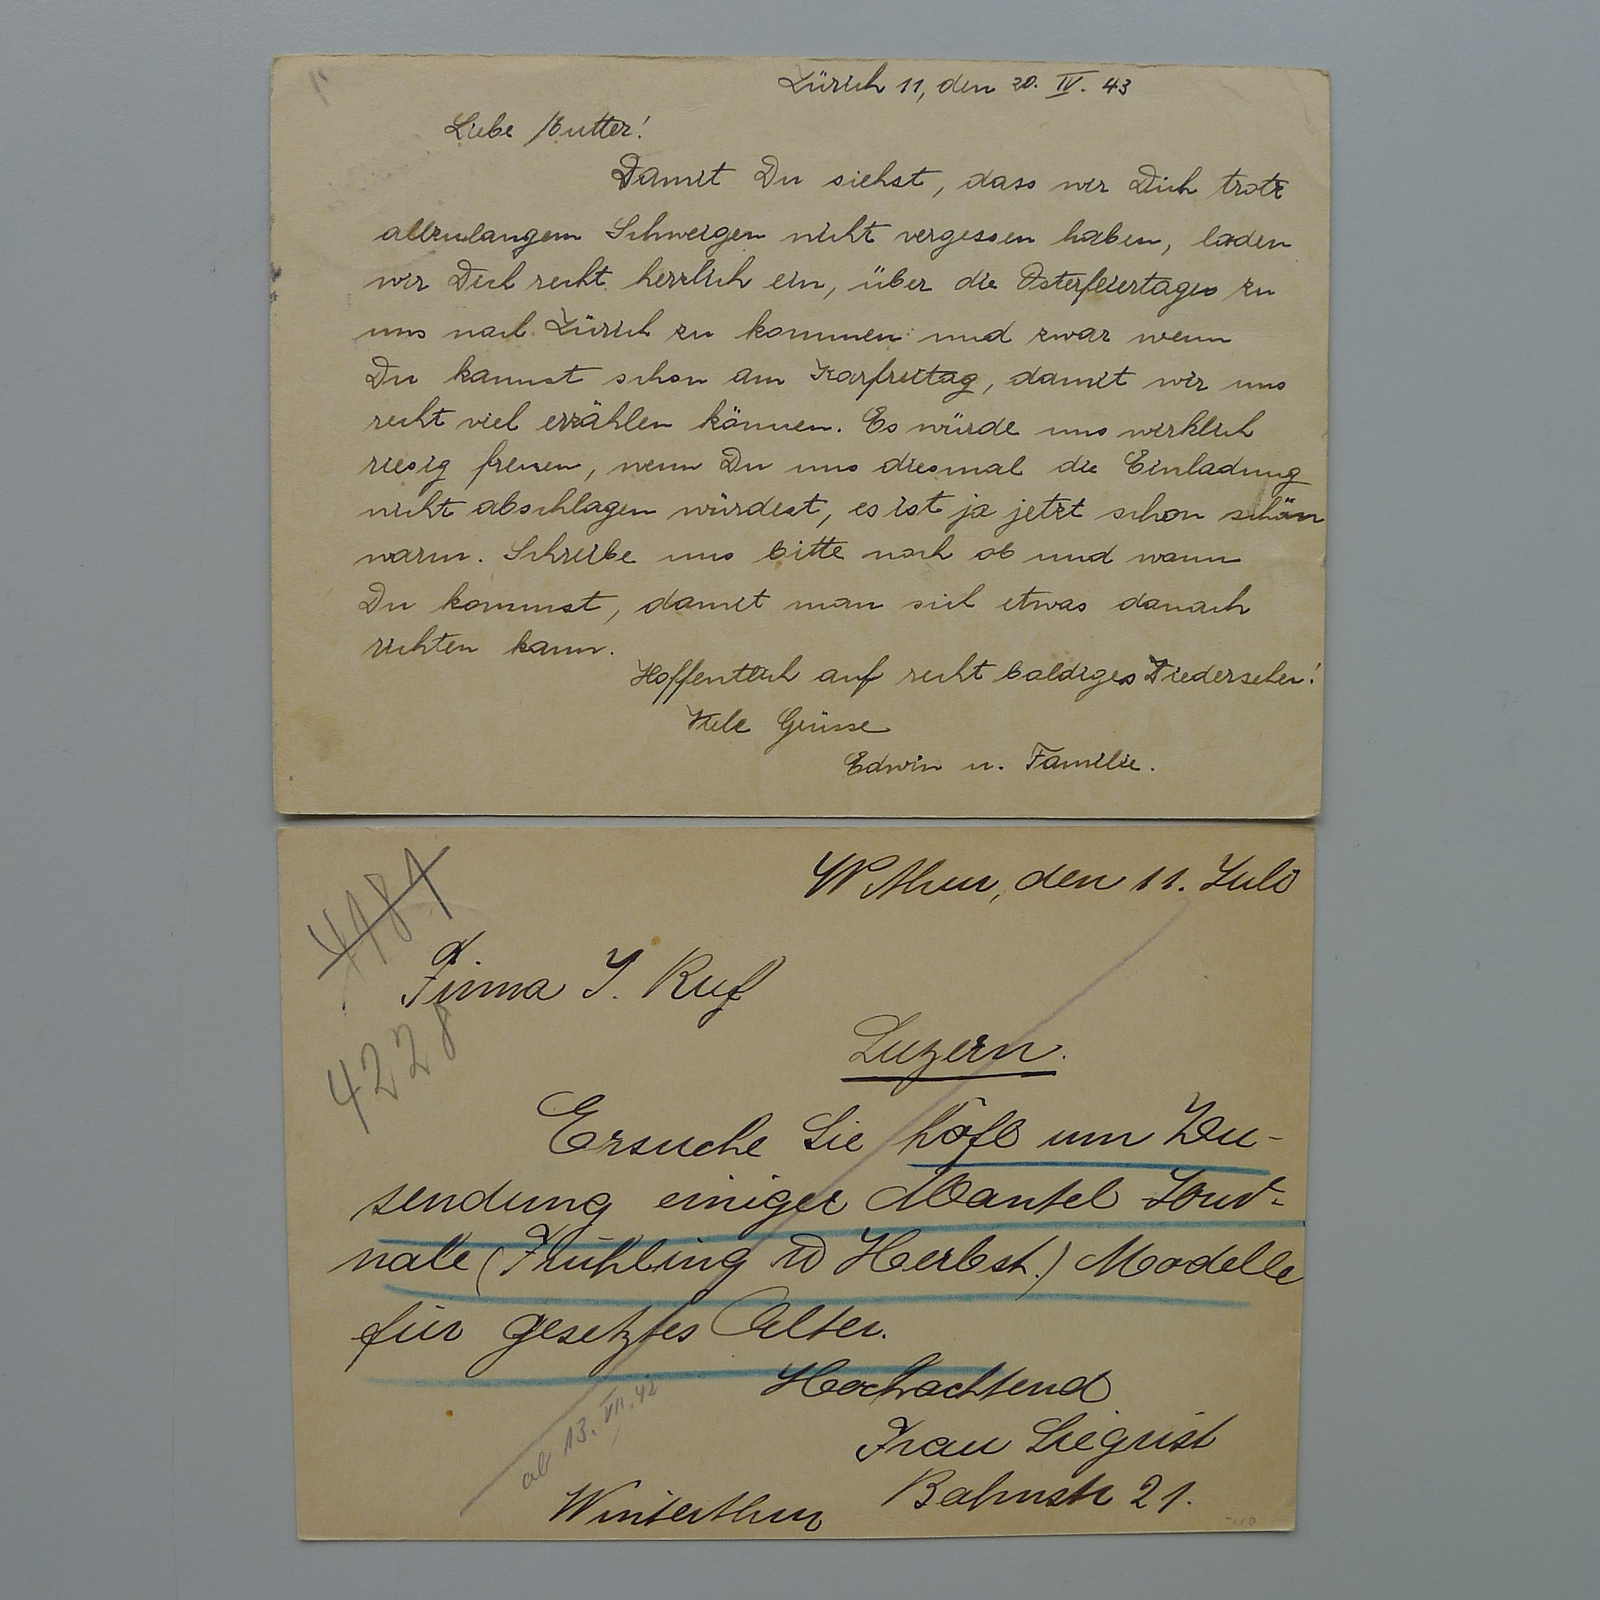 Zürich 11, den 20. IV. 43
Liebe Mutter!
Damit Du siehst, dass wir Dich trotz
allzulangem Schweigen nicht vergessen haben, laden
wir Dich recht herzlich ein, über die Osterfeiertage zu
uns nach Zürich zu kommen und zwar wenn
Du kannst schon am Karfreitag, damit wir uns
recht viel erzählen können. Es würde uns wirklich
riesig freuen, wenn Du uns diesmal die Einladung
nicht abschlagen würdest, es ist ja jetzt schon schön
warm. Schreibe uns bitte noch ob und wann
Du kommst, damit man sich etwas danach
richten kann.
Hoffentlich auf recht baldiges Wiedersehen!
Viele Grüsse
Edwin u. Familie.
W'thur, den 11. Juli
4184
Firma J. Ruf
4228
Luzern.
Ersuche Sie höfl um Zu-
sendung einiger Mantel Jour-
nale (Frühling u Herbst.) Modelle
für gesetztes Alter.
Hochachtend
ab 13. VII. 42
Frau Siegrist
Winterthur Bahnstr 21.